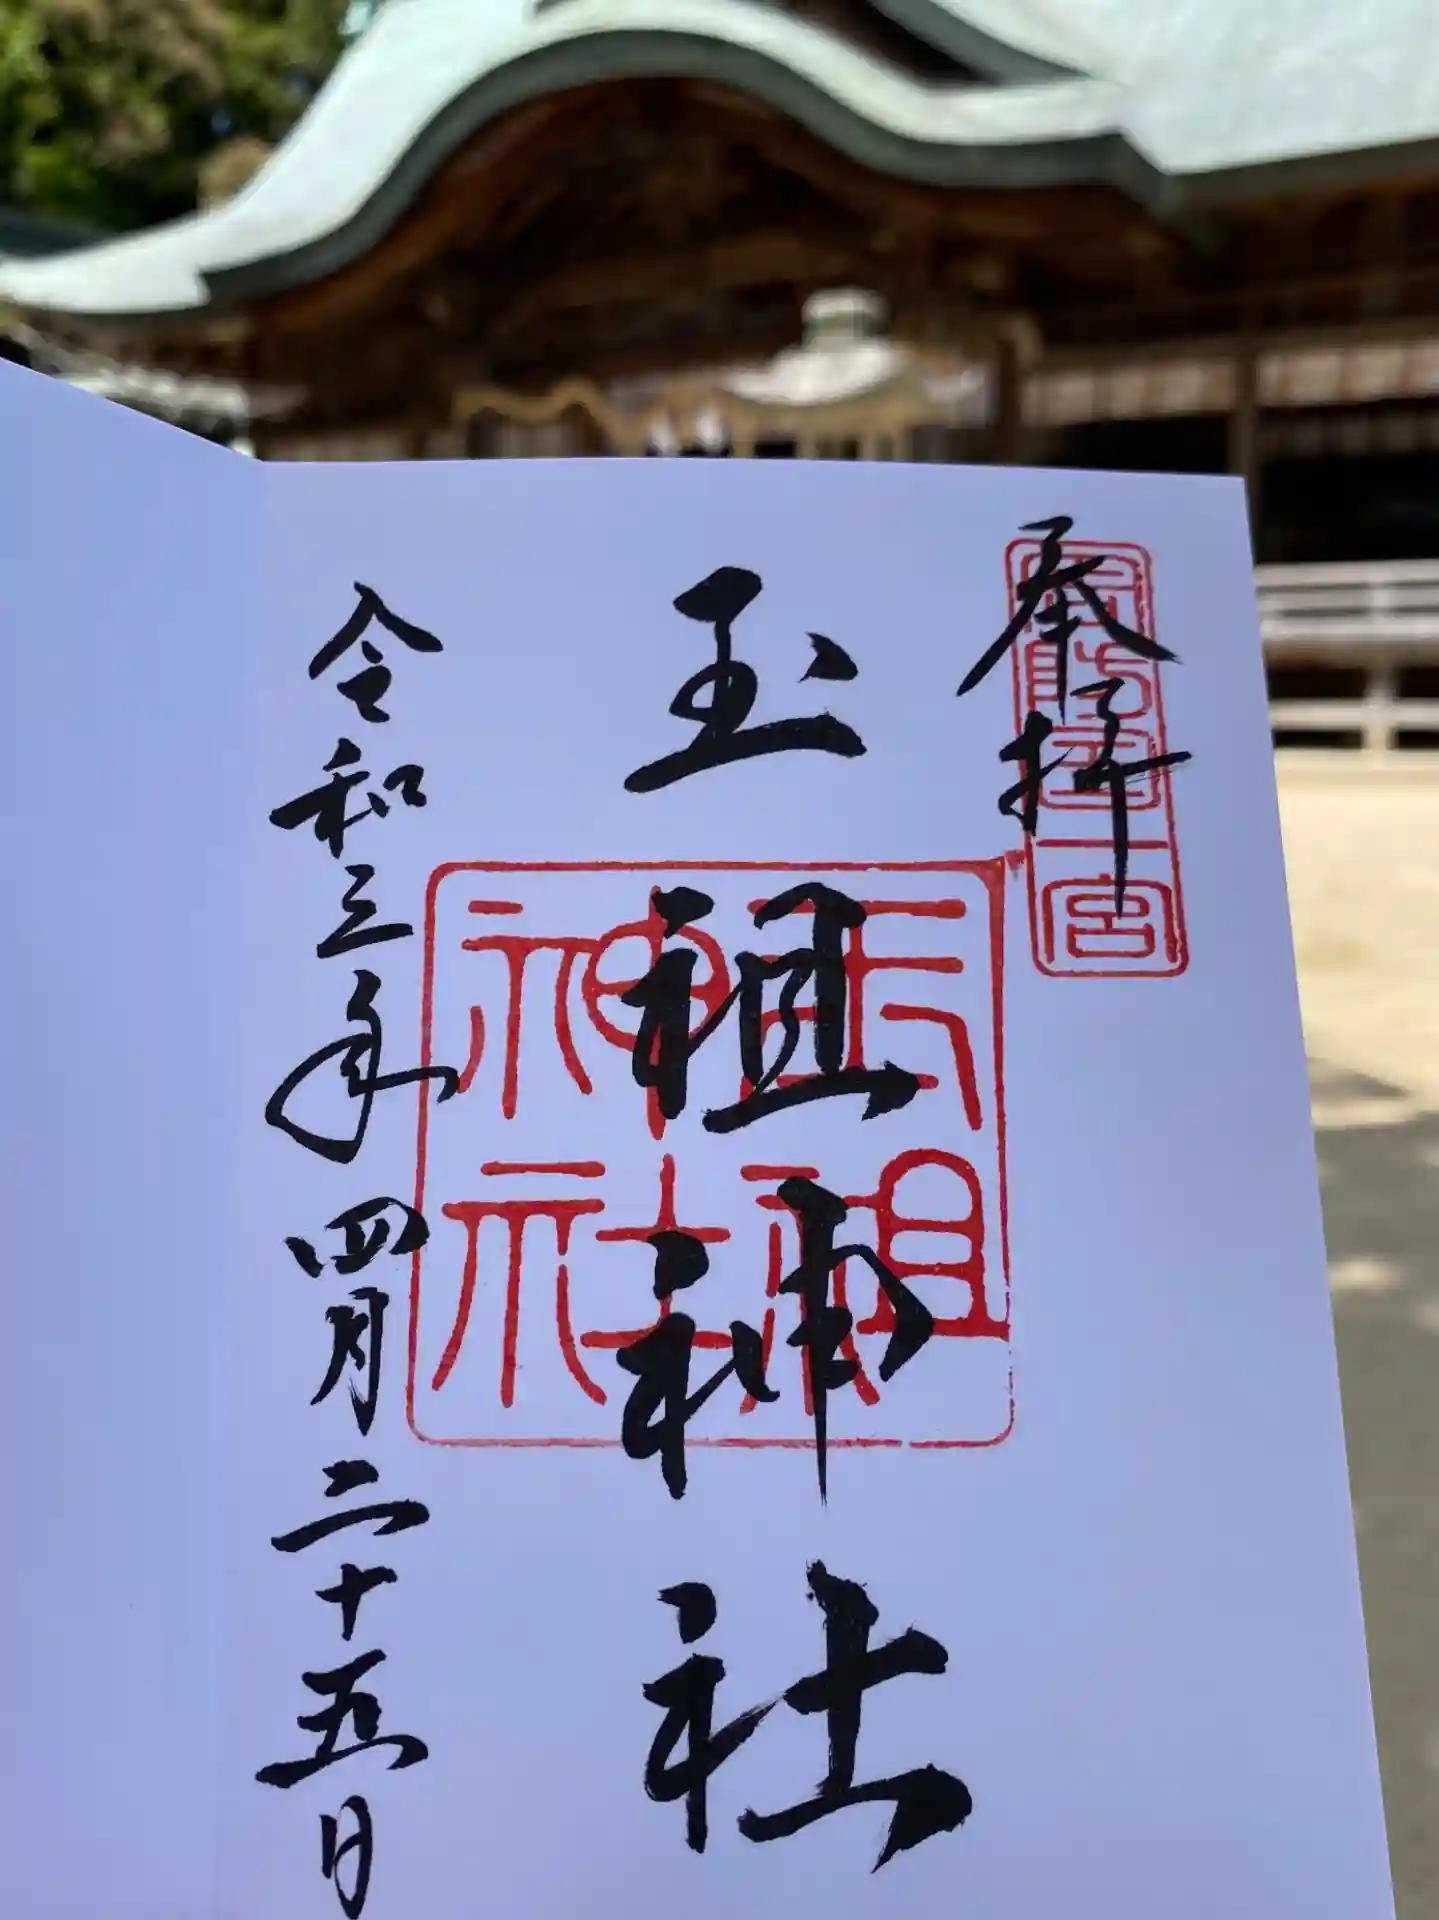 奉拝
周防国一宮
玉祖神社
玉祖神社
令和三年四月二十五日